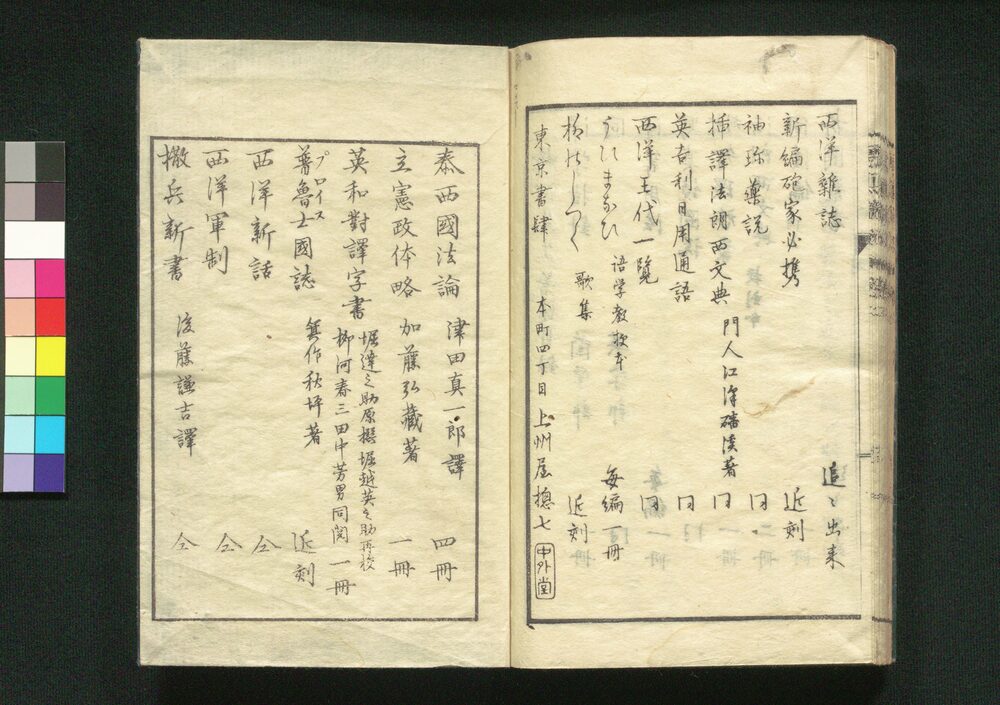 西洋雑誌 追〻出来
新編砲家必携 近刻
袖珍藥説 同
挿譯法朗西文典 門人江津磻溪著 同
英吉利日用通語 同
西洋王代一覧
うひまなひ 語学教授本 毎編一冊
歌集 近刻
東京書肆 本町四丁目 上州屋摠七 中外堂
泰西國法論 津田真一郎譯 四冊
立憲政体略 加藤弘藏著 一冊
英和對譯字書 堀達之助原撰堀越英之助再校 柳河春三田中芳男同閲 一冊
普魯士國誌 プロイス 箕作秋坪著 近刻
西洋新話 仝
西洋軍制 仝
撒兵新書 後藤謙吉譯 仝